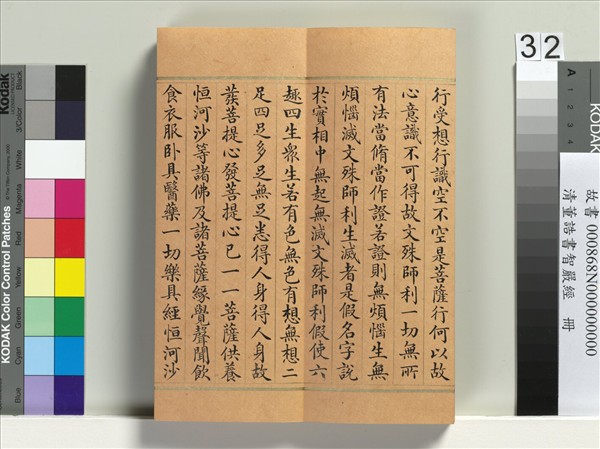 行受想行識空不空是菩薩行何以故
心意識不可得故文殊師利一切無所
有法當脩當作證若證則無煩惱生無
煩惱滅文殊師利生滅者是假名字說
於實相中無起無滅文殊師利假使六
趣四生眾生若有色無色有想無想二
足四足多足無足悉得人身得人身故
發菩提心發菩提心已一一菩薩供養
恒河沙等諸佛及諸菩薩緣覺聲聞飲
食衣服臥具醫藥一切樂具經恒河沙
32
A 1 2 3 4
KODAK
故書 000868N000000000
清董誥書智嚴經 冊
Kodak
KODAK Color Control Patches
Black
3/Color
White
Magenta
Red
Yellow
Green
Cyan
Blue